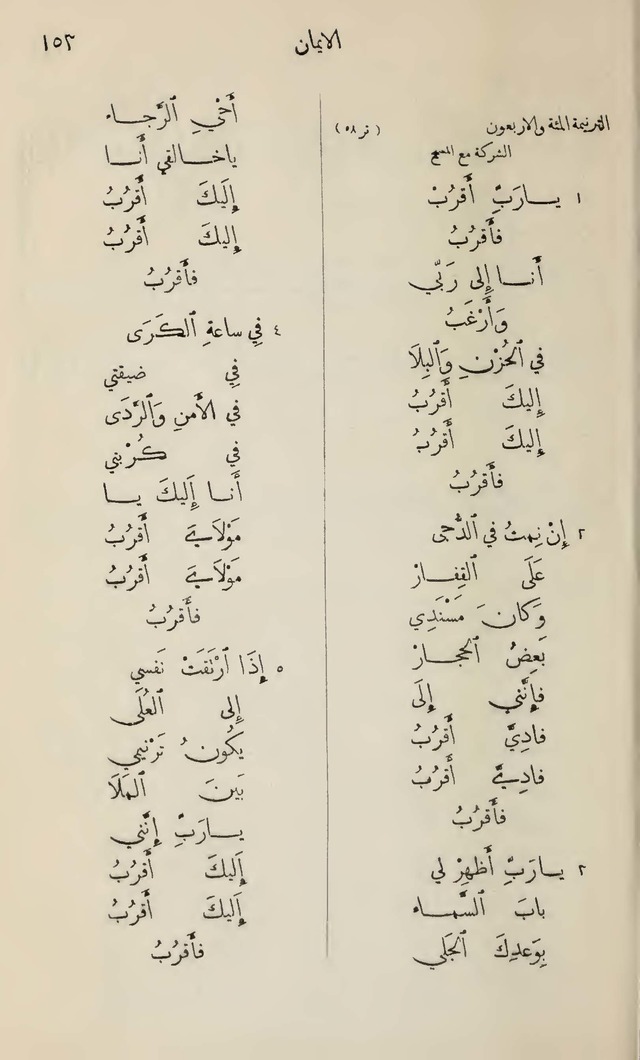 الايمان
١٥٢
الترنيمة المئة والاربعون
(تر ٥٨)
الشركة مع المسيح
١ يــارَبِّ أَقرُبْ
فأَقرُبُ
أَنــا إِلى رَبّي
وَأَرْغَبُ
في ٱلحُزْنِ وَٱلبِلَا
إِليكَ أَقرُبُ
إِليكَ أَقرُبُ
فأَقرُبُ
٢ إِنْ نِمتُ في ٱلدُّجى
عَلَى ٱلقِفــار
وَكانَ مَسْنَدِي
بَعضُ ٱلحجــار
فإِنَّني إِلَى
فادِيَّ أَقرُبُ
فادِيَّ أَقرُبُ
فأَقرُبُ
٣ يــارَبِّ أَظهِرْ لي
بابَ ٱلسَّمــاء
بِوَعدِكَ ٱلجَلي
أَحْيِ ٱلرَّجــاء
ياخــالقي أَنــا
إِلَيكَ أَقرُبُ
إِليكَ أَقرُبُ
فأَقرُبُ
٤ فِي ساعةِ ٱلكَرَى
فِي ضيقتي
في الأَمنِ وَٱلرَّدَى
في كُرْبتي
أَنــا إِلَيكَ يــا
مَوْلَايَ أَقرُبُ
مَوْلَايَ أَقرُبُ
فأَقرُبُ
٥ إِذَا ٱرْتَقَتْ نَفسي
إِلى ٱلعُلَى
يكُونُ تَرْنيمي
بَينَ ٱلمَلَا
يــارَبِّ إِنَّني
إِلَيكَ أَقرُبُ
إِلَيكَ أَقرُبُ
فأَقرُبُ